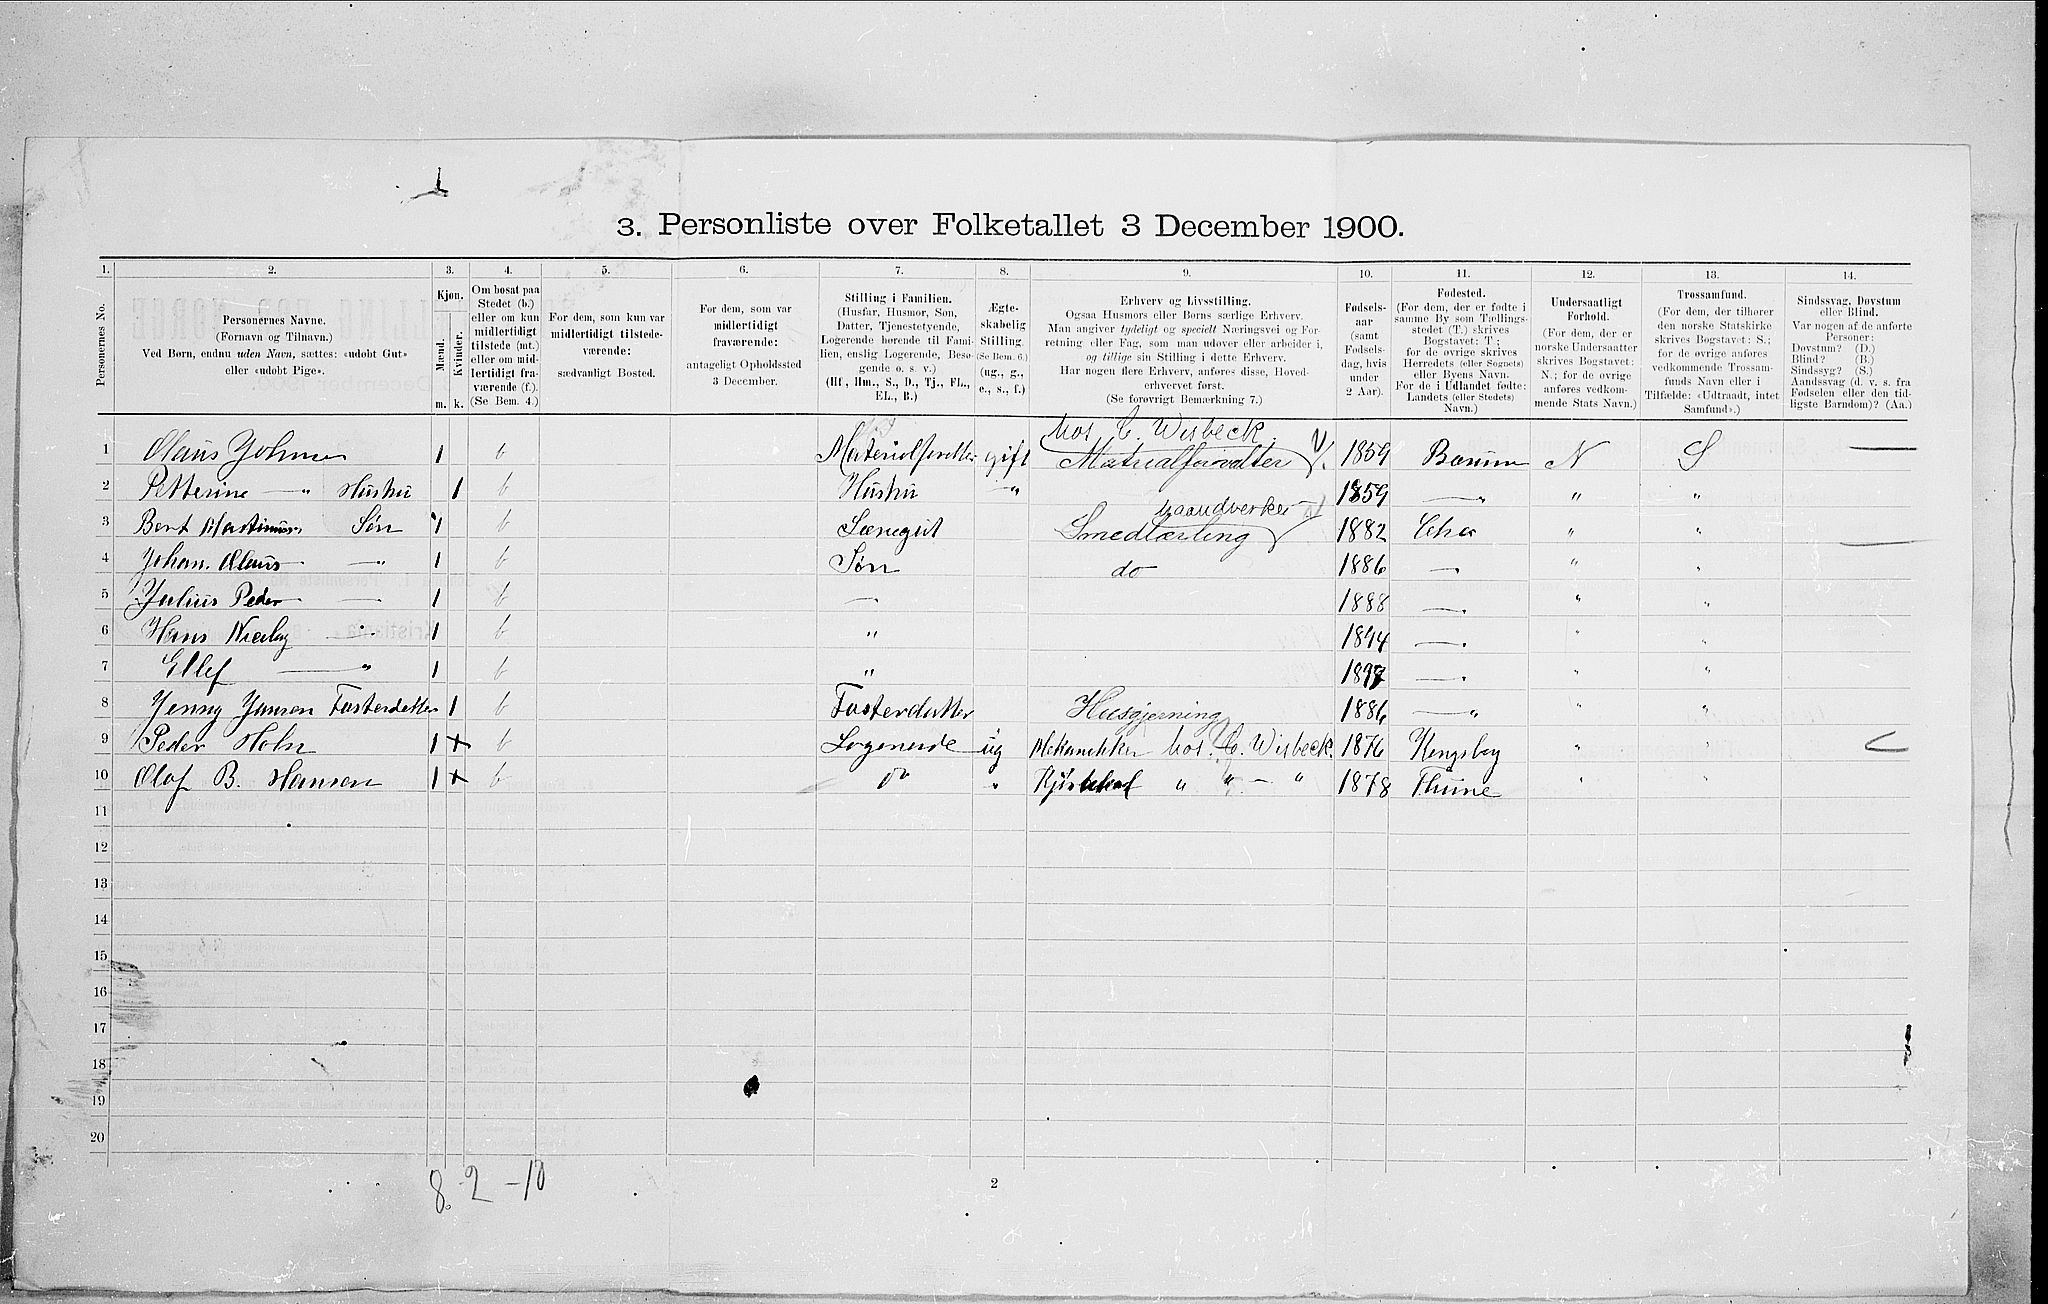 3. Personliste over Folketallet 3 December 1900.
1. 2. 3. 4. 5. 6. 7. 8. 9. 10. 11. 12. 13. 14.
Personernes No.
Personernes Navne.
(Fornavn og Tilnavn.)
Ved Børn, endnu uden Navn, sættes: «udøbt Gut»
eller «udøbt Pige».
Kjøn.
Mænd.
Kvinder.
m. k.
Om bosat paa
Stedet (b.)
eller om kun
midlertidigt
tilstede (mt.)
eller om mid-
lertidigt fra-
værende (f.).
(Se Bem. 4.)
For dem, som kun var
midlertidigt tilstede-
værende:
sædvanligt Bosted.
For dem, som var
midlertidigt
fraværende:
antageligt Opholdssted
3 December.
Stilling i Familien.
(Husfar, Husmor, Søn,
Datter, Tjenestetyende,
Logerende hørende til Fami-
lien, enslig Logerende, Besø-
gende o. s. v.)
(Hf., Hm., S., D., Tj., FL.,
EL., B.)
Ægte-
skabelig
Stilling.
(Se Bem. 6.)
(ug., g.,
e., s., f.)
Erhverv og Livsstilling.
Ogsaa Husmors eller Børns særlige Erhverv.
Man angiver tydeligt og specielt Næringsvei og For-
retning eller Fag, som man udøver eller arbeider i,
og tillige sin Stilling i dette Erhverv.
Har nogen flere Erhverv, anføres disse, Hoved-
erhvervet først.
(Se forøvrigt Bemærkning 7.)
Fødsels-
aar
(samt
Fødsels-
dag, hvis
under
2 Aar).
Fødested.
(For dem, der er fødte i
samme By som Tællings-
stedet (T.) skrives
Bogstavet: T.;
for de øvrige skrives
Herredets (eller Sognets)
eller Byens Navn.
For de i Udlandet fødte:
Landets (eller Stedets)
Navn.)
Undersaatligt
Forhold.
(For dem, der er
norske Undersaatter
skrives Bogstavet:
N.; for de øvrige
anføres vedkom-
mende Stats Navn.)
Trossamfund.
(For dem, der tilhører
den norske Statskirke
skrives Bogstavet: S.;
for de øvrige anføres
vedkommende Trossam-
funds Navn eller i
Tilfælde: «Udtraadt, intet
Samfund».)
Sindssvag, Døvstum
eller Blind.
Var nogen af de anførte
Personer:
Døvstum? (D.)
Blind? (B.)
Sindssyg? (S.)
Aandssvag (d. v. s. fra
Fødselen eller den tid-
ligste Barndom)? (Aa.)
hos C. Wisbeck.
1 Olaus Johnsen 1 b Materialforvalter gift Matrialforvalter 1859 Bærum N S —
2 Petterine — " Hustru 1 b Hustru — " 1859 — " " "
haandverker
3 Bernt Martinius Søn 1 b Smedlærling 1882 Chra " " —
4 Johan Olaus — " 1 b Søn do 1886 — " " "
5 Julius Peder — 1 b — 1888 — " " "
6 Hans Nicolay — " 1 b " 1894 — " " "
7 Ellef — " 1 b " 1897 — " " "
8 Jenny Jansen Fosterdatter 1 b Fosterdatter Husgjerning 1886 — " " "
9 Peder Holm 1 + b Logerende ug Mekanikker hos C. Wisbeck. 1876 Kongsberg " "
10 Olaf B. Hansen 1 + b do " " " — " 1878 " "
11
12
13
14
15
16
17
18
19
20
8. 2 - 10
2